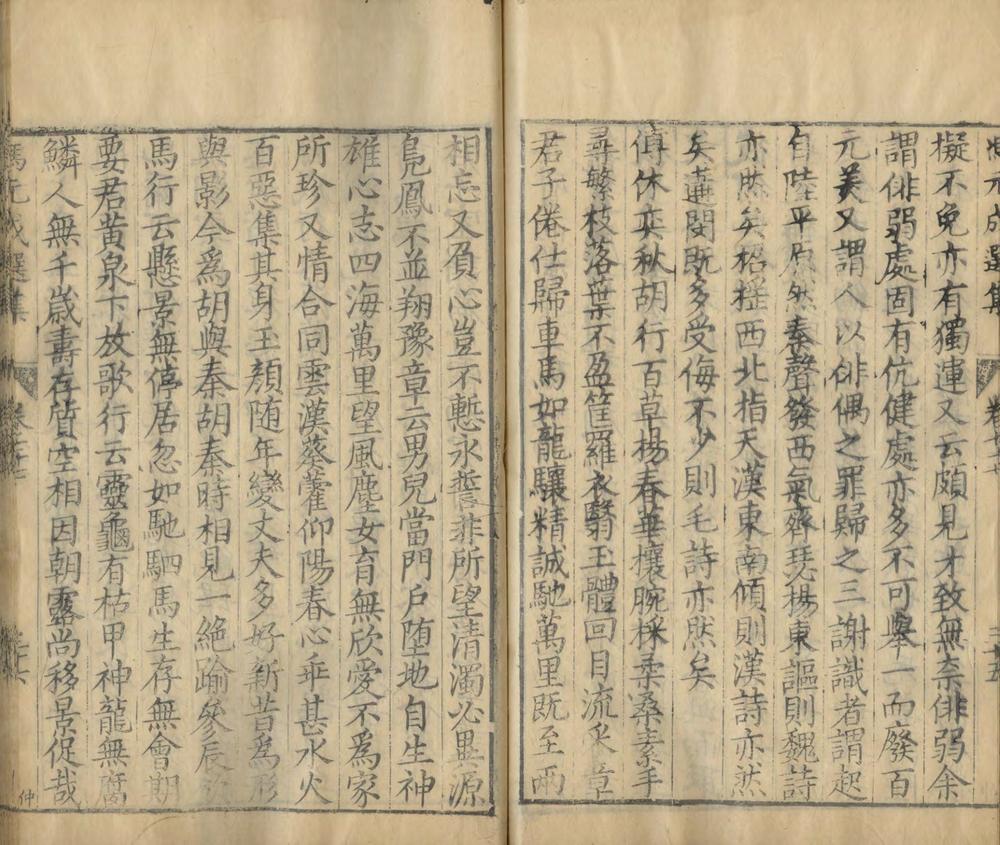 馮元成選集 卷六十七 三十五
擬不免亦有獨運又云頗見才致無柰俳弱余
謂俳弱處固有伉健處亦多不可舉一而廢百
元美又謂人以俳偶之罪歸之三謝識者謂起
自陸平原然秦聲發西氣齊瑟揚東謳則魏詩
亦然矣招搖西北指天漢東南傾則漢詩亦然
矣遘閔既多受侮不少則毛詩亦然矣
傅休奕秋胡行百草揚春華攘腕採柔桑素手
尋繁枝落葉不盈筐羅衣翳玉體回目流采章
君子倦仕歸車馬如龍驤精誠馳萬里既至兩
相忘又負心豈不慙永誓非所望清濁必異源
鳧鳳不並翔豫章云男兒當門戶墮地自生神
雄心志四海萬里望風塵女育無欣愛不爲家
所珍又情合同雲漢葵藿仰陽春心乖甚水火
百惡集其身玉顏隨年變丈夫多好新昔爲形
與影今爲胡與秦胡秦時相見一絕踰參辰
馬行云懸景無停居忽如馳駟馬生存無會期
要君黃泉下放歌行云靈龜有枯甲神龍無腐
鱗人無千歲壽存質空相因朝露尚移景促哉
馮元成選集 卷六十七
仲